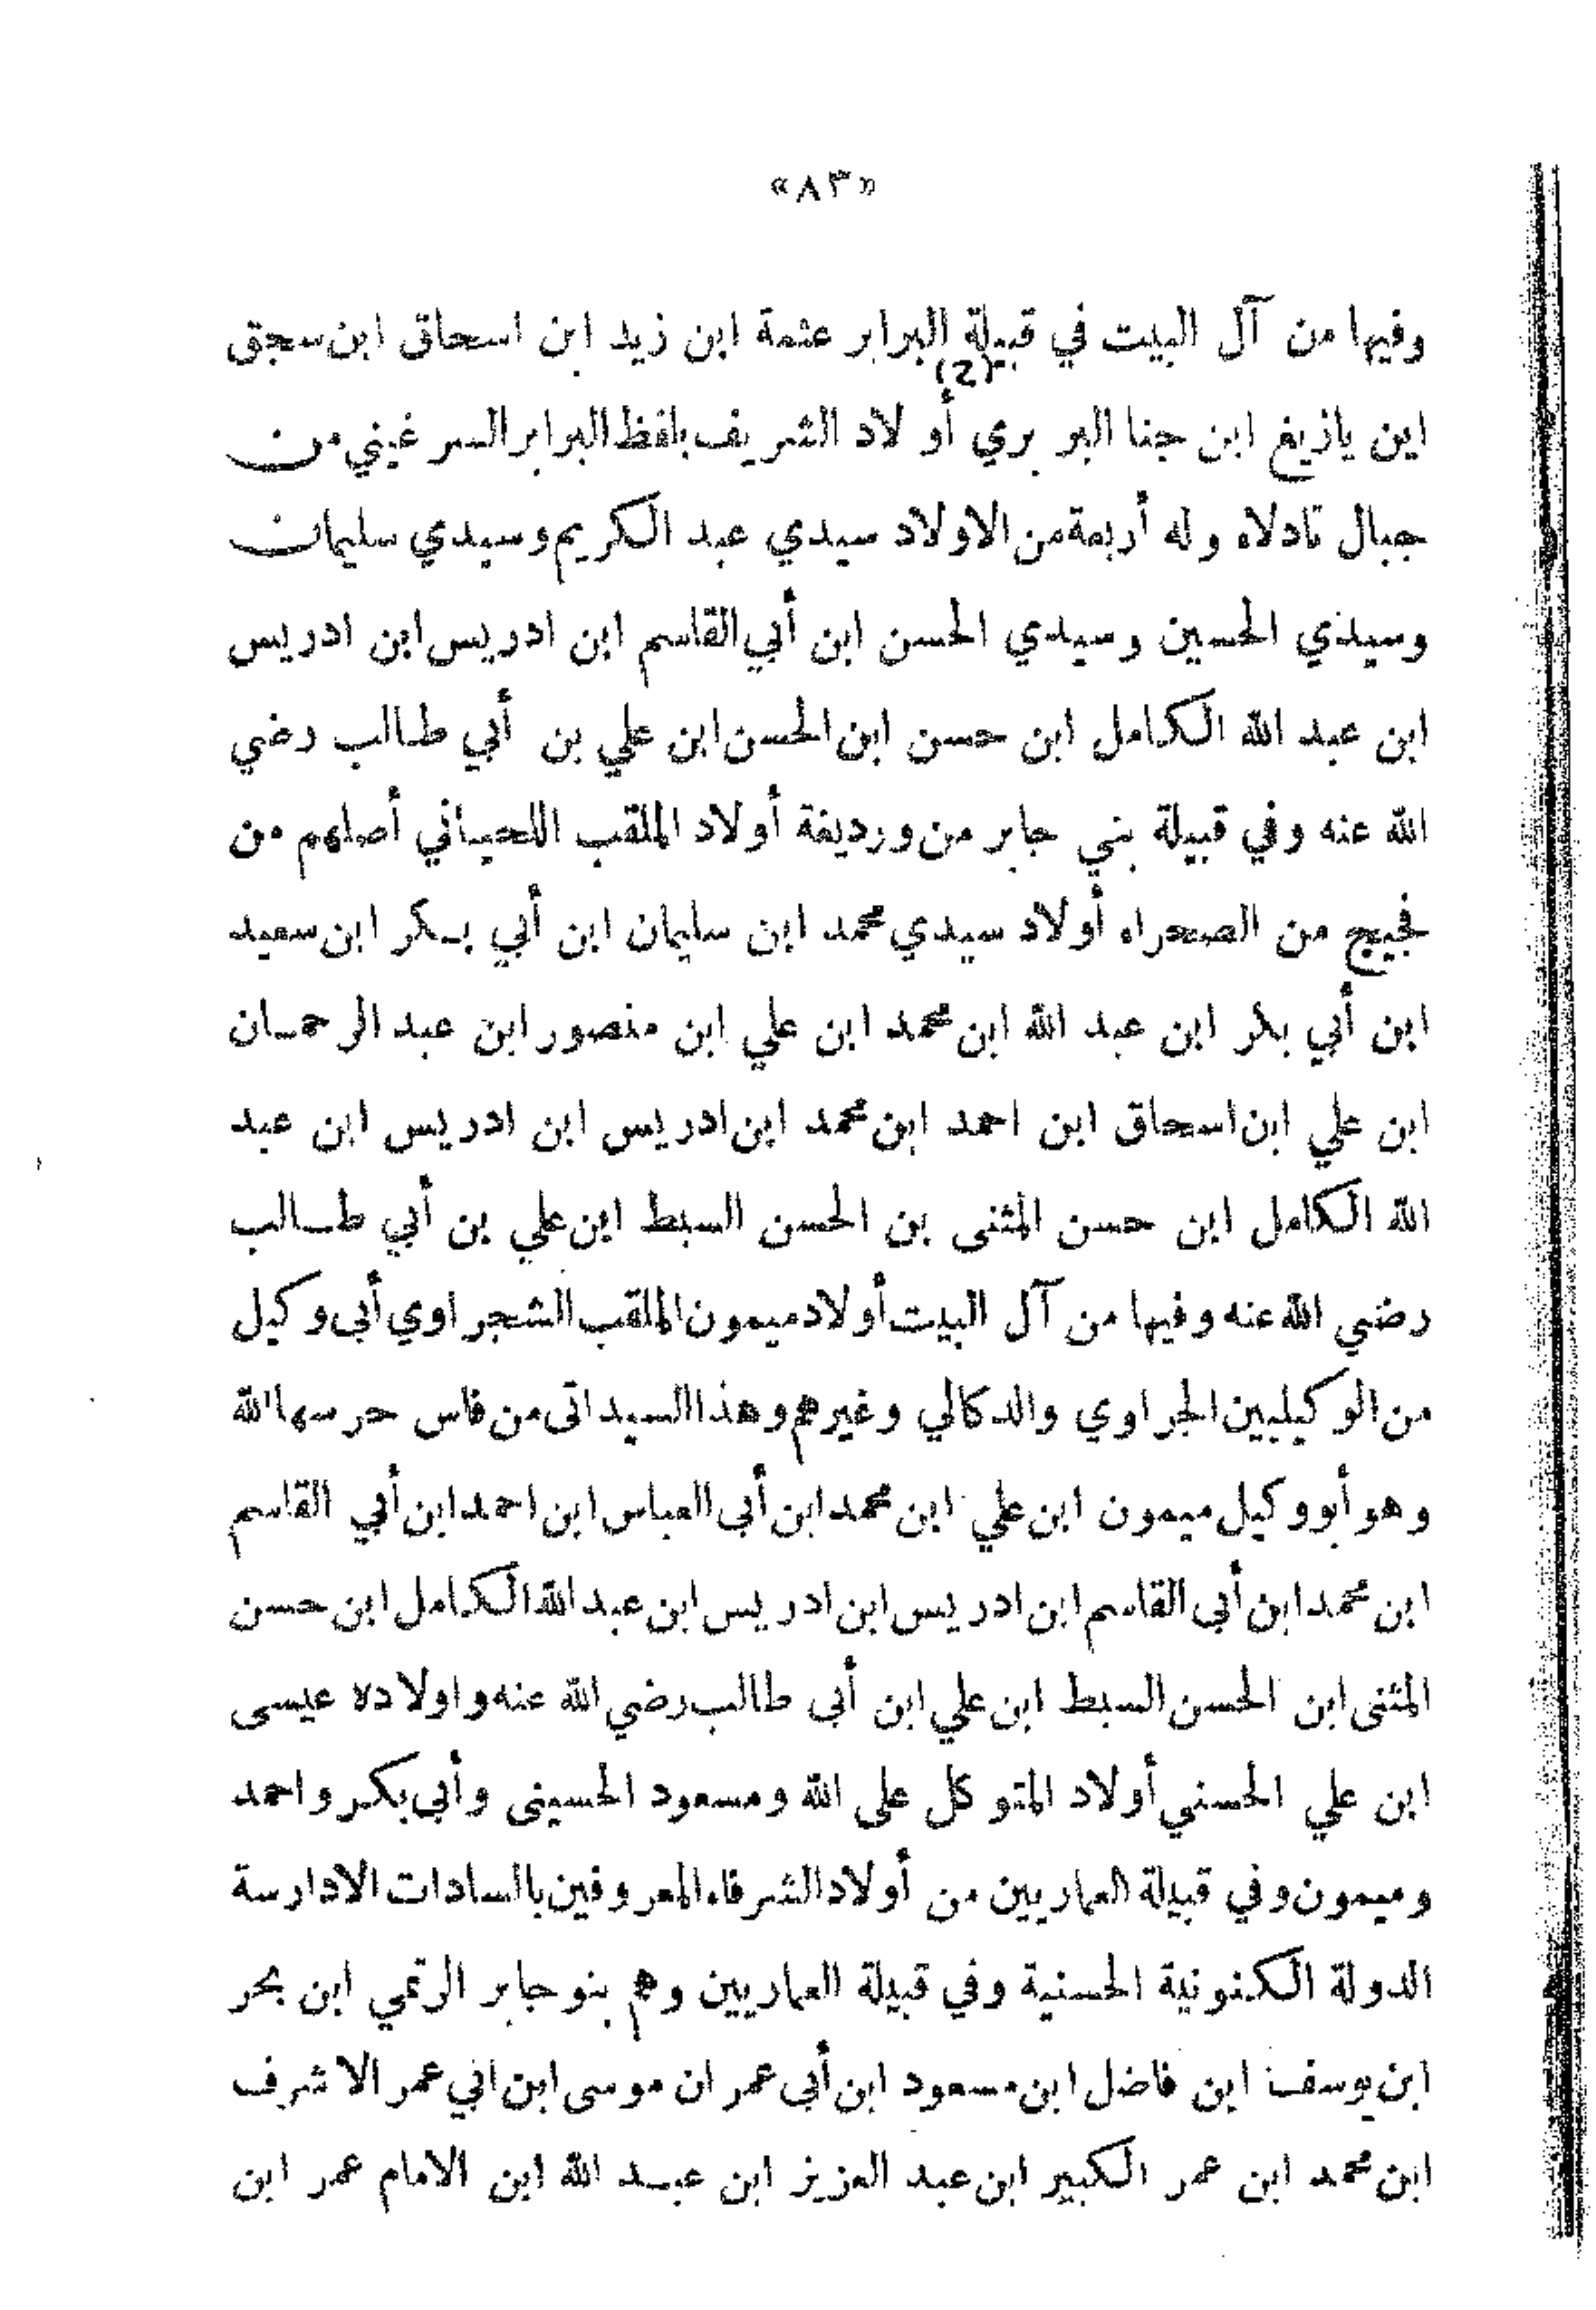 «٨٣»
وفيها من آل البيت في قبيلة البرابر عثمة ابن زيد ابن اسحاق ابن سجق
(2)
ابن يازيغ ابن جنا البر بري أولاد الشريف بلفظ البرابر السرغيني من
جبال تادلاه وله أربعة من الاولاد سيدي عبد الكريم وسيدي سليمان
وسيدي الحسين وسيدي الحسن ابن أبي القاسم ابن ادريس ابن ادريس
ابن عبد الله الكامل ابن حسن ابن الحسن ابن علي بن أبي طالب رضي
الله عنه وفي قبيلة بني جابر من ورديغة أولاد الملقب اللحياني أصلهم من
فجيج من الصحراء أولاد سيدي محمد ابن سليمان ابن أبي بكر ابن سعيد
ابن أبي بكر ابن عبد الله ابن محمد ابن علي ابن منصور ابن عبد الرحمان
ابن علي ابن اسحاق ابن احمد ابن محمد ابن ادريس ابن ادريس ابن عبد
الله الكامل ابن حسن المثنى بن الحسن السبط ابن علي بن أبي طالب
رضي الله عنه وفيها من آل البيت أولاد ميمون الملقب الشجراوي أبي وكيل
من الوكيليين الجراوي والدكالي وغيرهم وهذا السيد اتى من فاس حرسها الله
وهو أبو وكيل ميمون ابن علي ابن محمد ابن أبي العباس ابن احمد ابن أبي القاسم
ابن محمد ابن أبي القاسم ابن ادريس ابن ادريس ابن عبد الله الكامل ابن حسن
المثنى ابن الحسن السبط ابن علي ابن أبي طالب رضي الله عنه واولاده عيسى
ابن علي الحسني أولاد المتوكل على الله ومسعود الحسينى وأبي بكر واحمد
وميمون وفي قبيلة العماريين من أولاد الشرفاء المعروفين بالسادات الادارسة
الدولة الكنونية الحسنية وفي قبيلة العماريين وهم بنو جابر الرتمي ابن بحر
ابن يوسف ابن فاضل ابن مسعود ابن أبي عمران موسى ابن ابي عمر الاشرف
ابن محمد ابن عمر الكبير ابن عبد العزيز ابن عبد الله ابن الامام عمر ابن